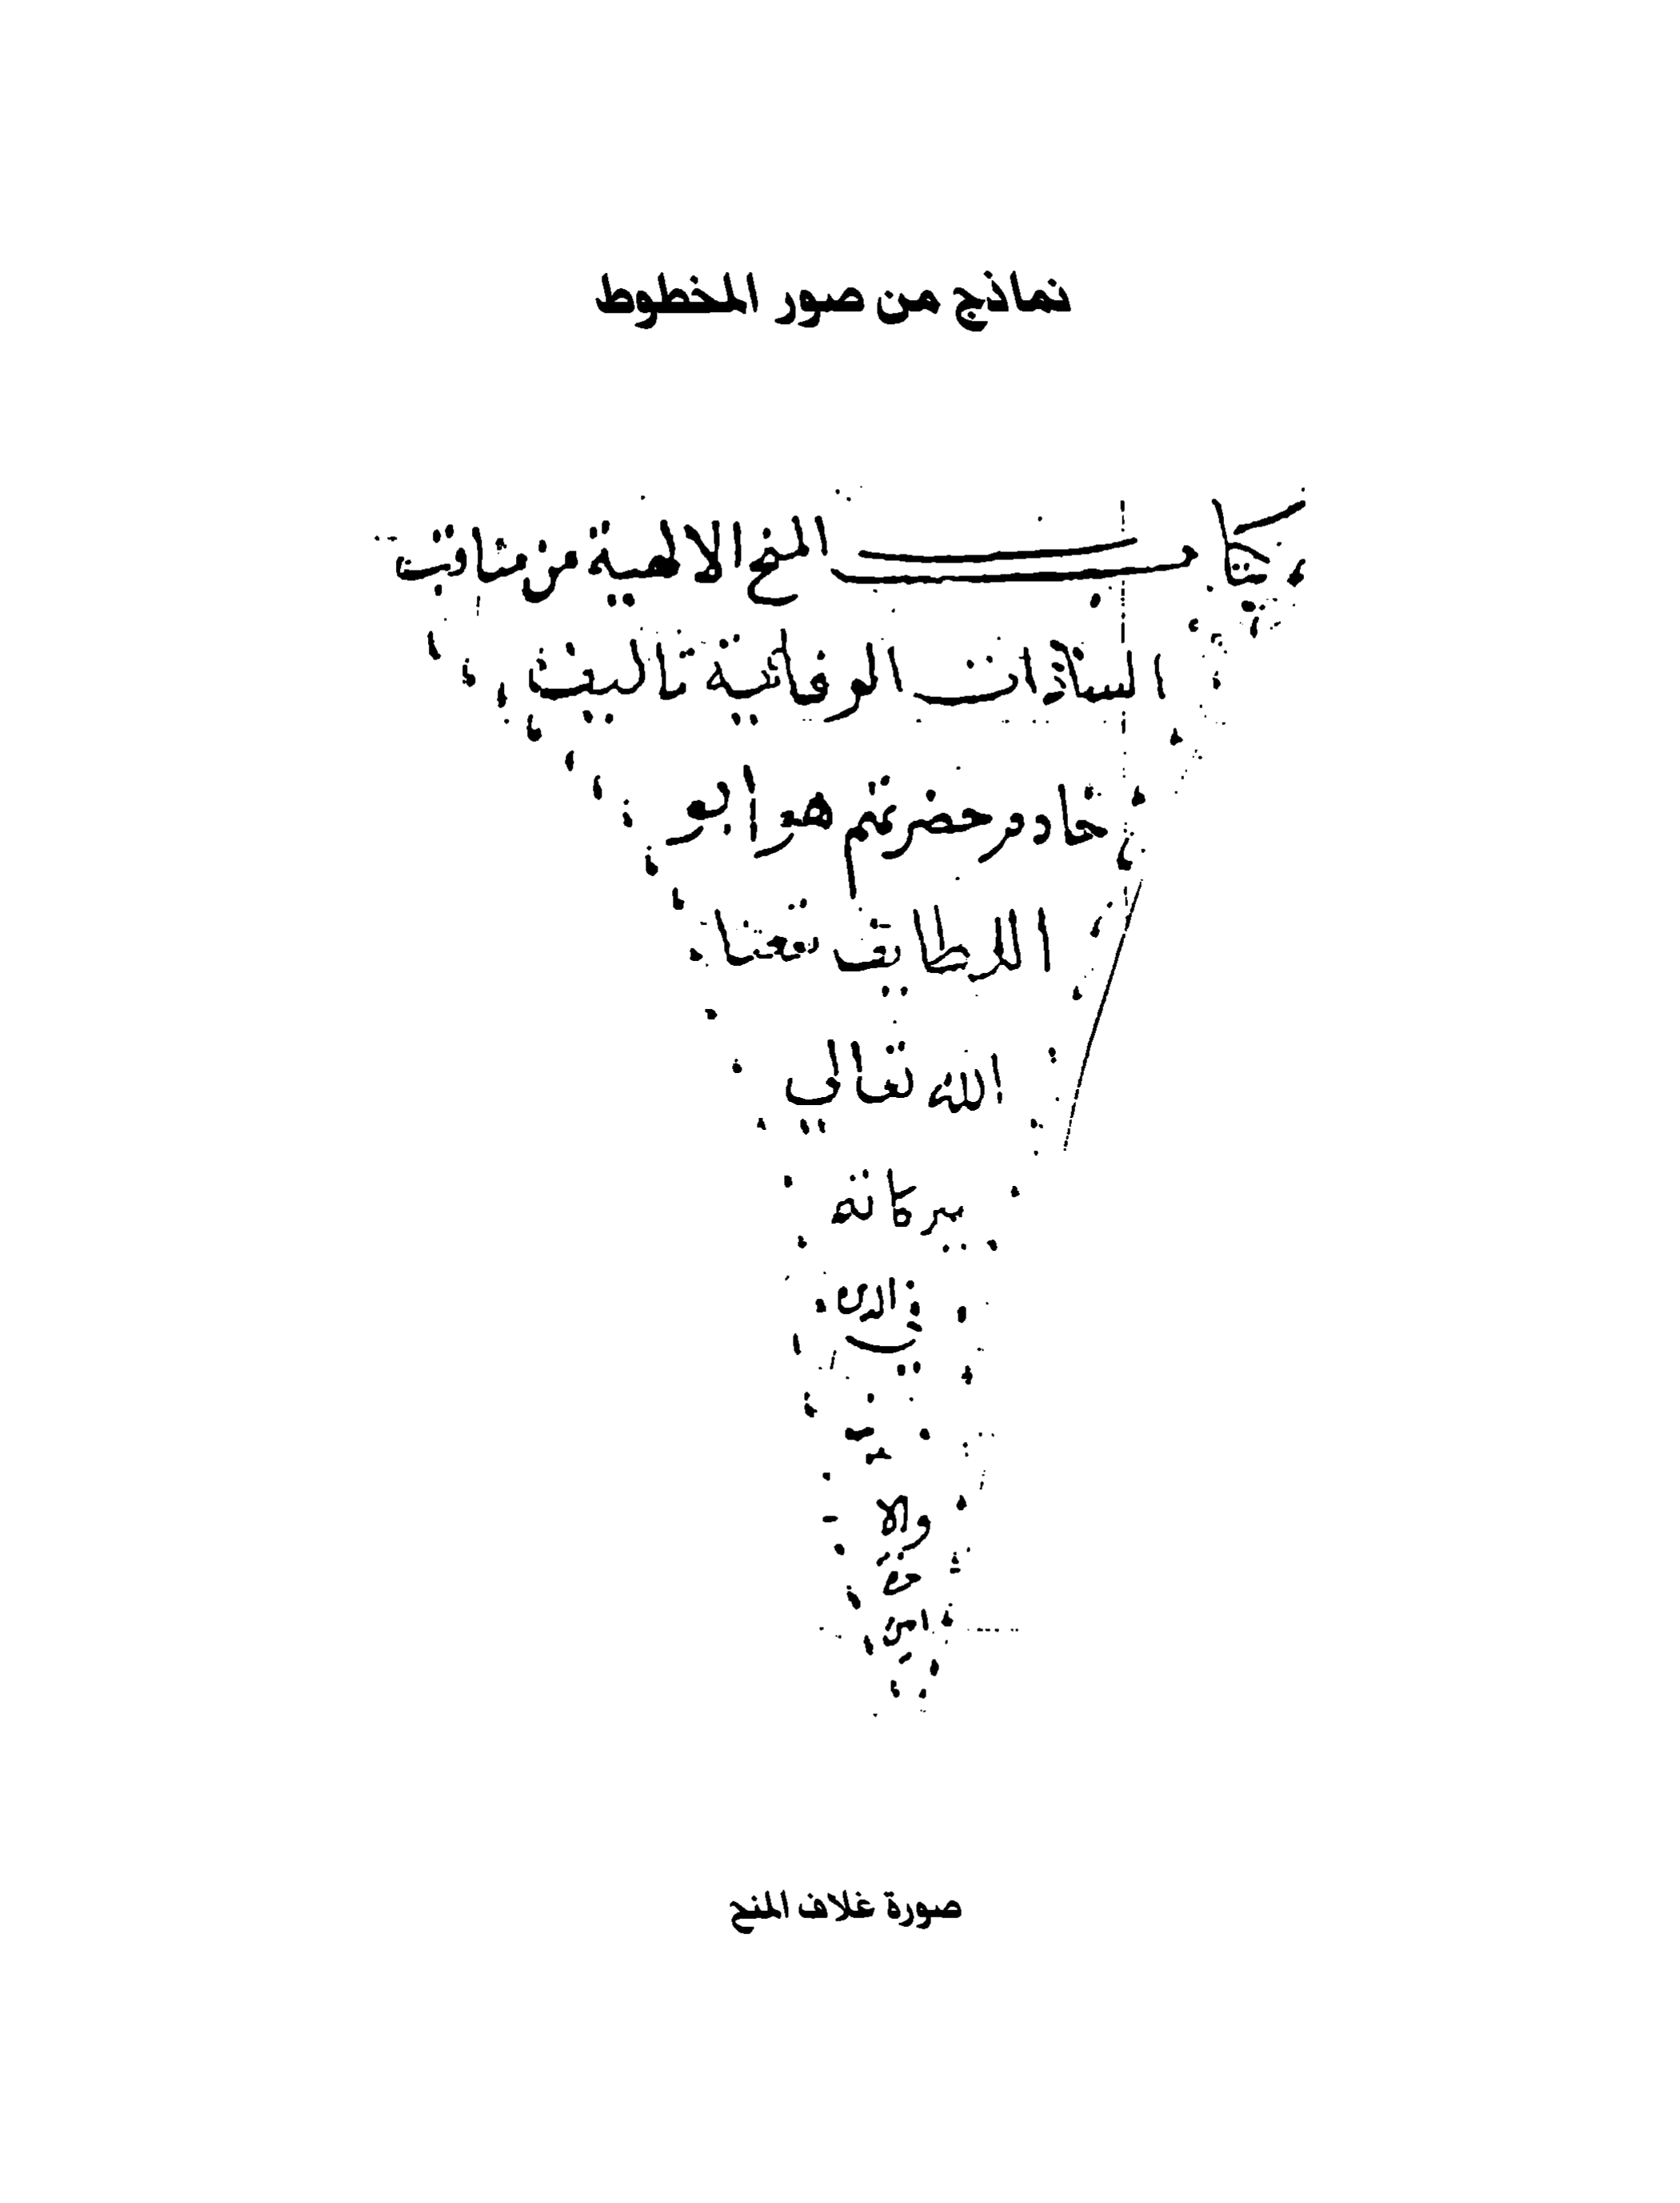 نماذج من صور المخطوط
كتاب المنح الالهية من مناقب
السادات الوفائية تاليف
خادم حضرتهم هو ابو
اللطايف نفعنا
الله تعالي
ببركاته
في الدن
يا
والا
خرة
امين
صورة غلاف المنح